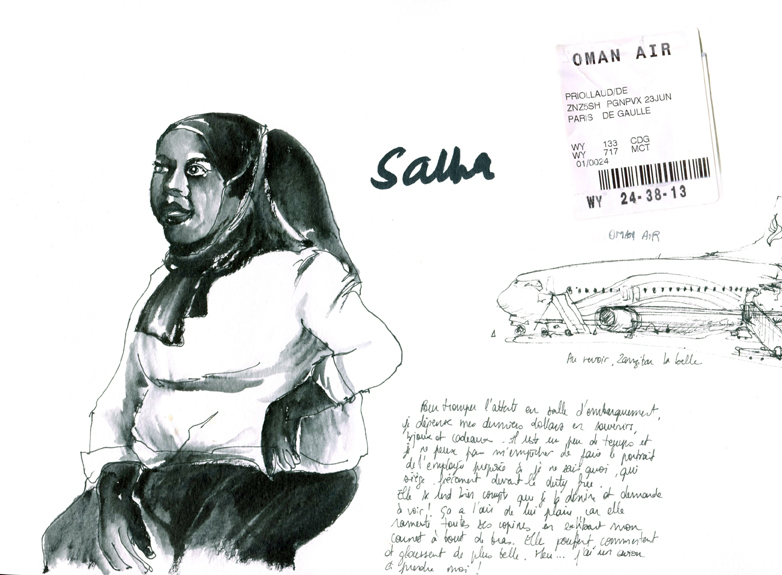 Salha
OMAN AIR
PRIOLLAUD/DE
ZNZ5SH PGNPVX 23JUN
PARIS DE GAULLE
WY 133 CDG
WY 717 MCT
01/0024
WY 24-38-13
OMAN AIR
Au revoir, Zanzibar la belle
Pour tromper l'attente en salle d'embarquement,
je dépense mes derniers dollars en souvenirs,
bijoux et cadeaux. Il reste un peu de temps et
je ne peux pas m'empêcher de faire le portrait
de l'employée préposée à je ne sais quoi, qui
siège fièrement devant le duty free.
Elle se rend bien compte que je la dessine et demande
à voir ! Ça a l'air de lui plaire car elle
ramène toutes ses copines en exhibant mon
carnet à bout de bras. Elles pouffent, commentent
et gloussent de plus belle. Heu... j'ai un avion
à prendre moi !